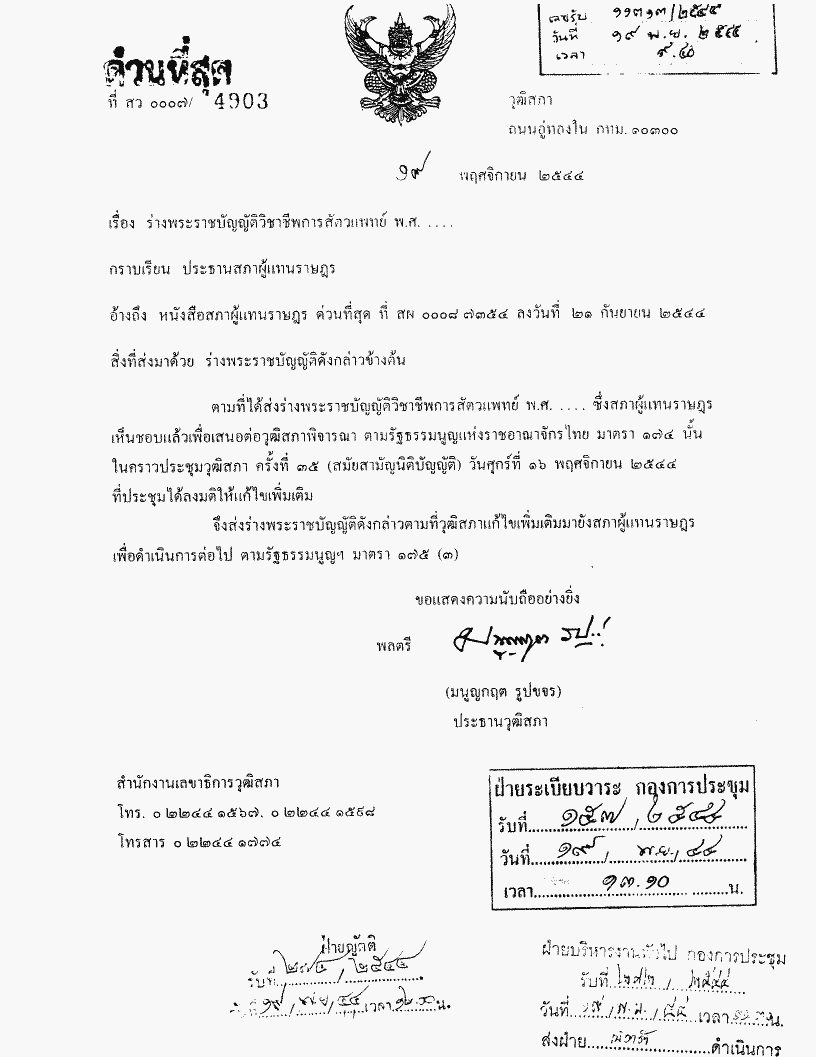 ด่วนที่สุด
ที่ สว ๐๐๐๗/ 4903
เลขรับ ๑๑๓๑๓/๒๕๔๔
วันที่ ๑๙ พ.ย. ๒๕๔๔
เวลา ๙.๔๐
วุฒิสภา
ถนนอู่ทองใน กทม. ๑๐๓๐๐
๑๙ พฤศจิกายน ๒๕๔๔
เรื่อง ร่างพระราชบัญญัติวิชาชีพการสัตวแพทย์ พ.ศ. ....
กราบเรียน ประธานสภาผู้แทนราษฎร
อ้างถึง หนังสือสภาผู้แทนราษฎร ด่วนที่สุด ที่ สผ ๐๐๐๘ ๗๓๕๔ ลงวันที่ ๒๑ กันยายน ๒๕๔๔
สิ่งที่ส่งมาด้วย ร่างพระราชบัญญัติดังกล่าวข้างต้น
ตามที่ได้ส่งร่างพระราชบัญญัติวิชาชีพการสัตวแพทย์ พ.ศ. .... ซึ่งสภาผู้แทนราษฎร
เห็นชอบแล้วเพื่อเสนอต่อวุฒิสภาพิจารณา ตามรัฐธรรมนูญแห่งราชอาณาจักรไทย มาตรา ๑๗๔ นั้น
ในคราวประชุมวุฒิสภา ครั้งที่ ๓๕ (สมัยสามัญนิติบัญญัติ) วันศุกร์ที่ ๑๖ พฤศจิกายน ๒๕๔๔
ที่ประชุมได้ลงมติให้แก้ไขเพิ่มเติม
จึงส่งร่างพระราชบัญญัติดังกล่าวตามที่วุฒิสภาแก้ไขเพิ่มเติมมายังสภาผู้แทนราษฎร
เพื่อดำเนินการต่อไป ตามรัฐธรรมนูญฯ มาตรา ๑๗๕ (๓)
ขอแสดงความนับถืออย่างยิ่ง
พลตรี
(มนูญกฤต รูปขจร)
ประธานวุฒิสภา
สำนักงานเลขาธิการวุฒิสภา
โทร. ๐ ๒๒๔๔ ๑๕๖๗, ๐ ๒๒๔๔ ๑๕๙๘
โทรสาร ๐ ๒๒๔๔ ๑๗๗๔
ฝ่ายระเบียบวาระ กองการประชุม
รับที่ ๑๕๗ / ๒๕๔๔
วันที่ ๑๙ / พ.ย. / ๔๔
เวลา ๑๓.๑๐ น.
ฝ่ายญัตติ
รับที่ / ๒๕๔๔
๑๙ / พย / ๔๔ เวลา น.
ฝ่ายบริหารงานทั่วไป กองการประชุม
รับที่ / ๒๕๔๔
วันที่ ๑๙ / พ.ย. / ๔๔ เวลา น.
ส่งฝ่าย ดำเนินการ